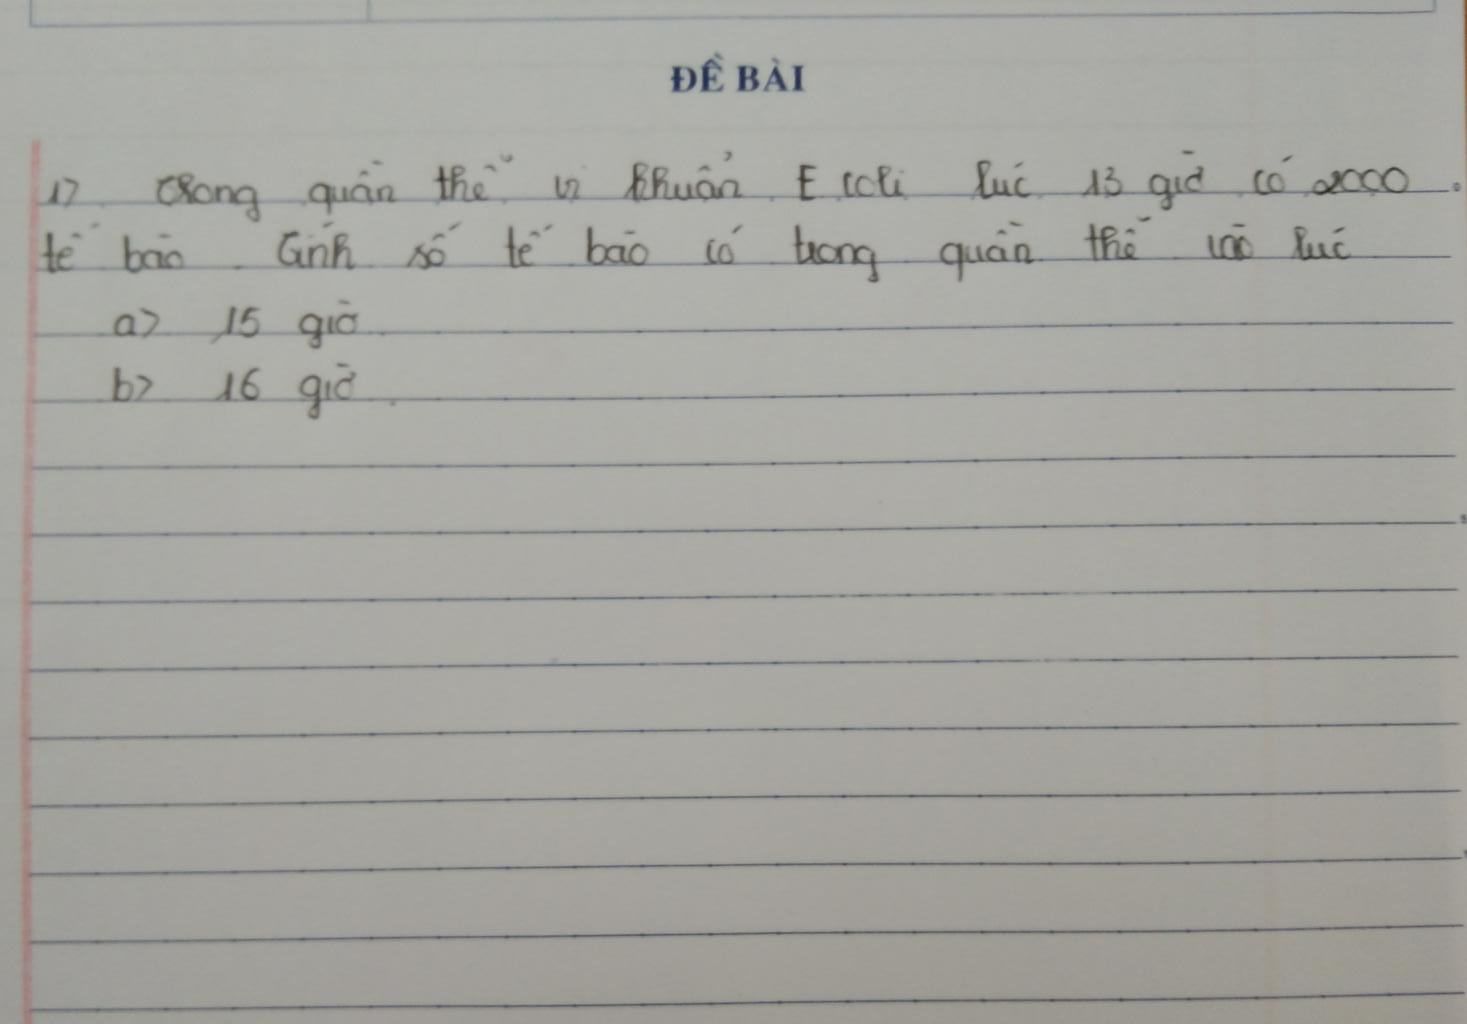 ĐỀ BÀI
1) Trong quần thể vi khuẩn E coli lúc 13 giờ có 2000
tế bào. Tính số tế bào có trong quần thể vào lúc
a) 15 giờ
b) 16 giờ.